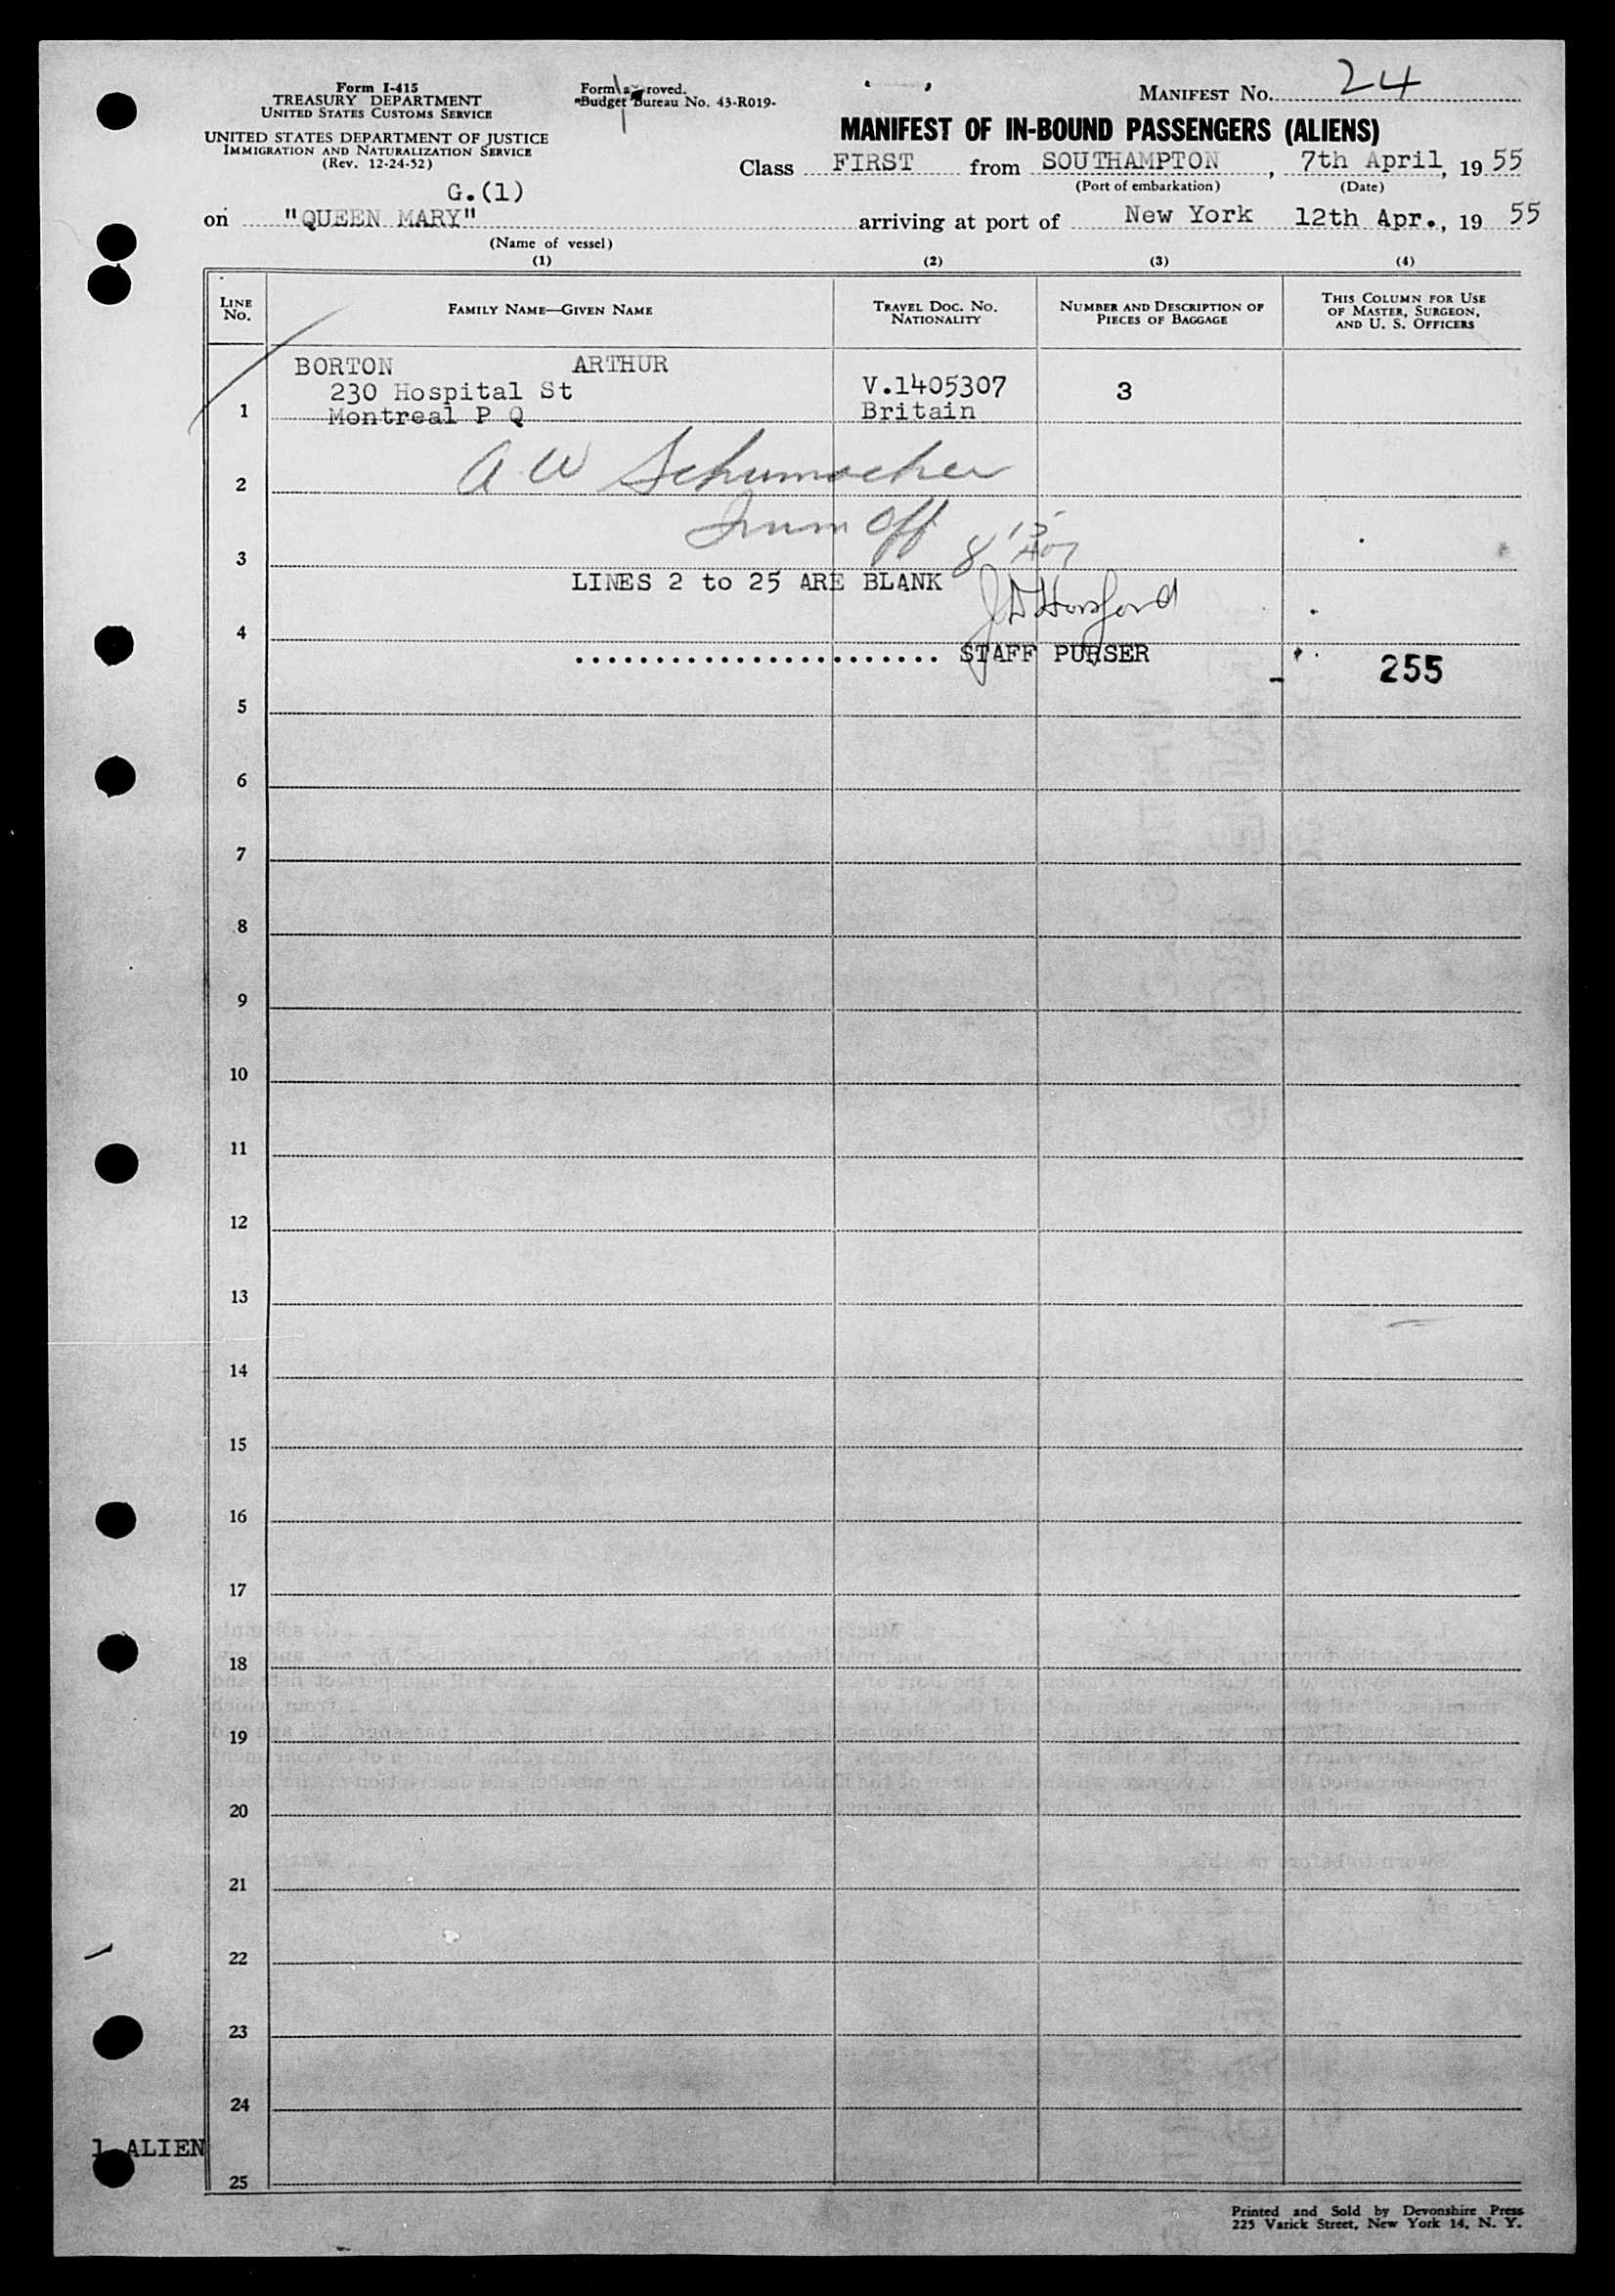 Form I-415
TREASURY DEPARTMENT
UNITED STATES CUSTOMS SERVICE
UNITED STATES DEPARTMENT OF JUSTICE
IMMIGRATION AND NATURALIZATION SERVICE
(Rev. 12-24-52)
Form a roved.
Budget Bureau No. 43-R019-
MANIFEST NO. 24
MANIFEST OF IN-BOUND PASSENGERS (ALIENS)
Class FIRST from SOUTHAMPTON, 7th April, 19 55
(Port of embarkation) (Date)
G.(1)
on "QUEEN MARY" arriving at port of New York 12th Apr., 19 55
(Name of vessel)
(1) (2) (3) (4)
LINE NO. FAMILY NAME—GIVEN NAME TRAVEL DOC. NO. NATIONALITY NUMBER AND DESCRIPTION OF PIECES OF BAGGAGE THIS COLUMN FOR USE OF MASTER, SURGEON, AND U. S. OFFICERS
BORTON ARTHUR
230 Hospital St V.1405307 3
1 Montreal P Q Britain
2 A W Schumacher
Imm Off
3
LINES 2 to 25 ARE BLANK
4
STAFF PURSER
255
5
6
7
8
9
10
11
12
13
14
15
16
17
18
19
20
21
22
23
24
1 ALIEN
25
Printed and Sold by Devonshire Press
225 Varick Street, New York 14, N. Y.